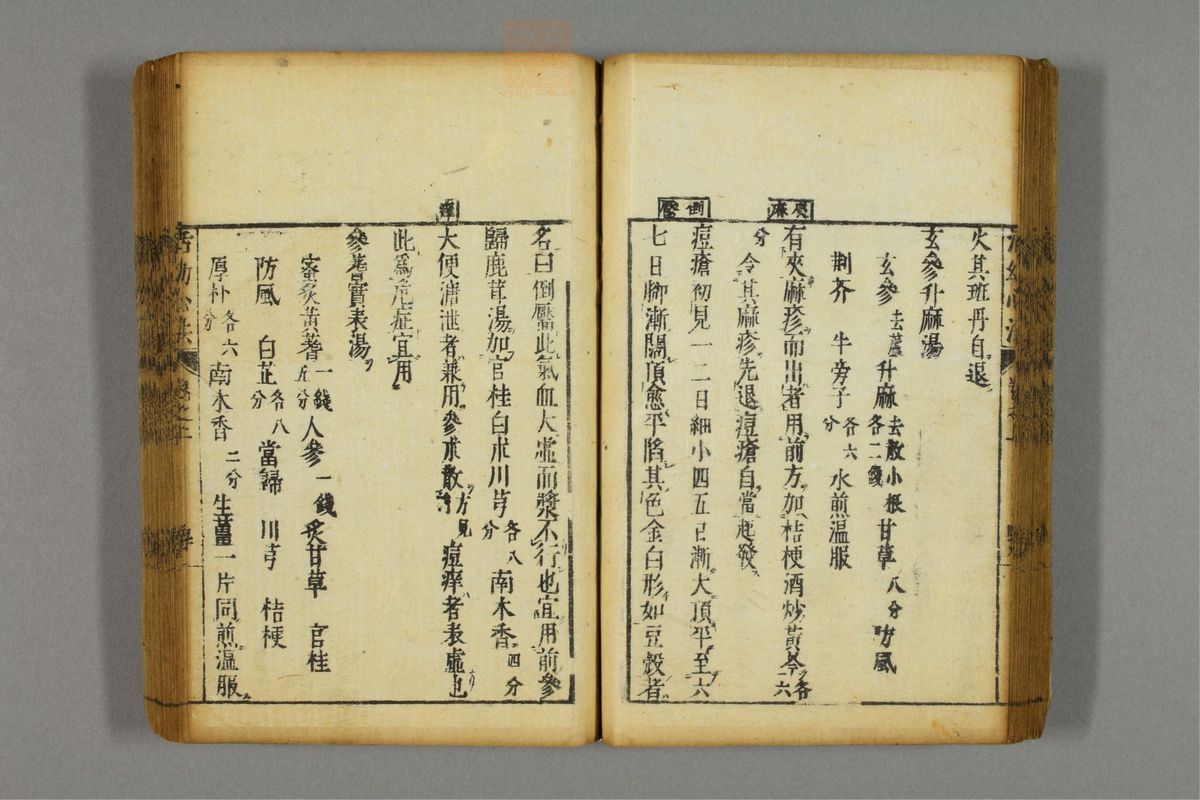 火其班丹自退
玄參升麻湯
玄參去蘆升麻去散小根各二錢甘草八分防風
荆芥 牛旁子各六分水煎溫服
夾麻
有夾麻疹而出者用前方加桔梗酒炒黃芩各六
分令其麻疹先退痘瘡自當起發
倒靨
痘瘡初見一二日細小四五日漸大頂平至六
七日腳漸闊頂愈平陷其色金白形如豆殼者
名曰倒靨此氣血大虛而漿不行也宜用前參
歸鹿茸湯加官桂白朮川芎各八分南木香四分
痒
大便溏泄者兼用參朮散方見痘痒者表虛也
此為危症宜用
參耆實表湯
蜜炙黃耆一錢五分人參一錢炙甘草 官桂
防風 白芷各八分當歸 川芎 桔梗
厚朴各六分南木香二分生薑一片同煎溫服